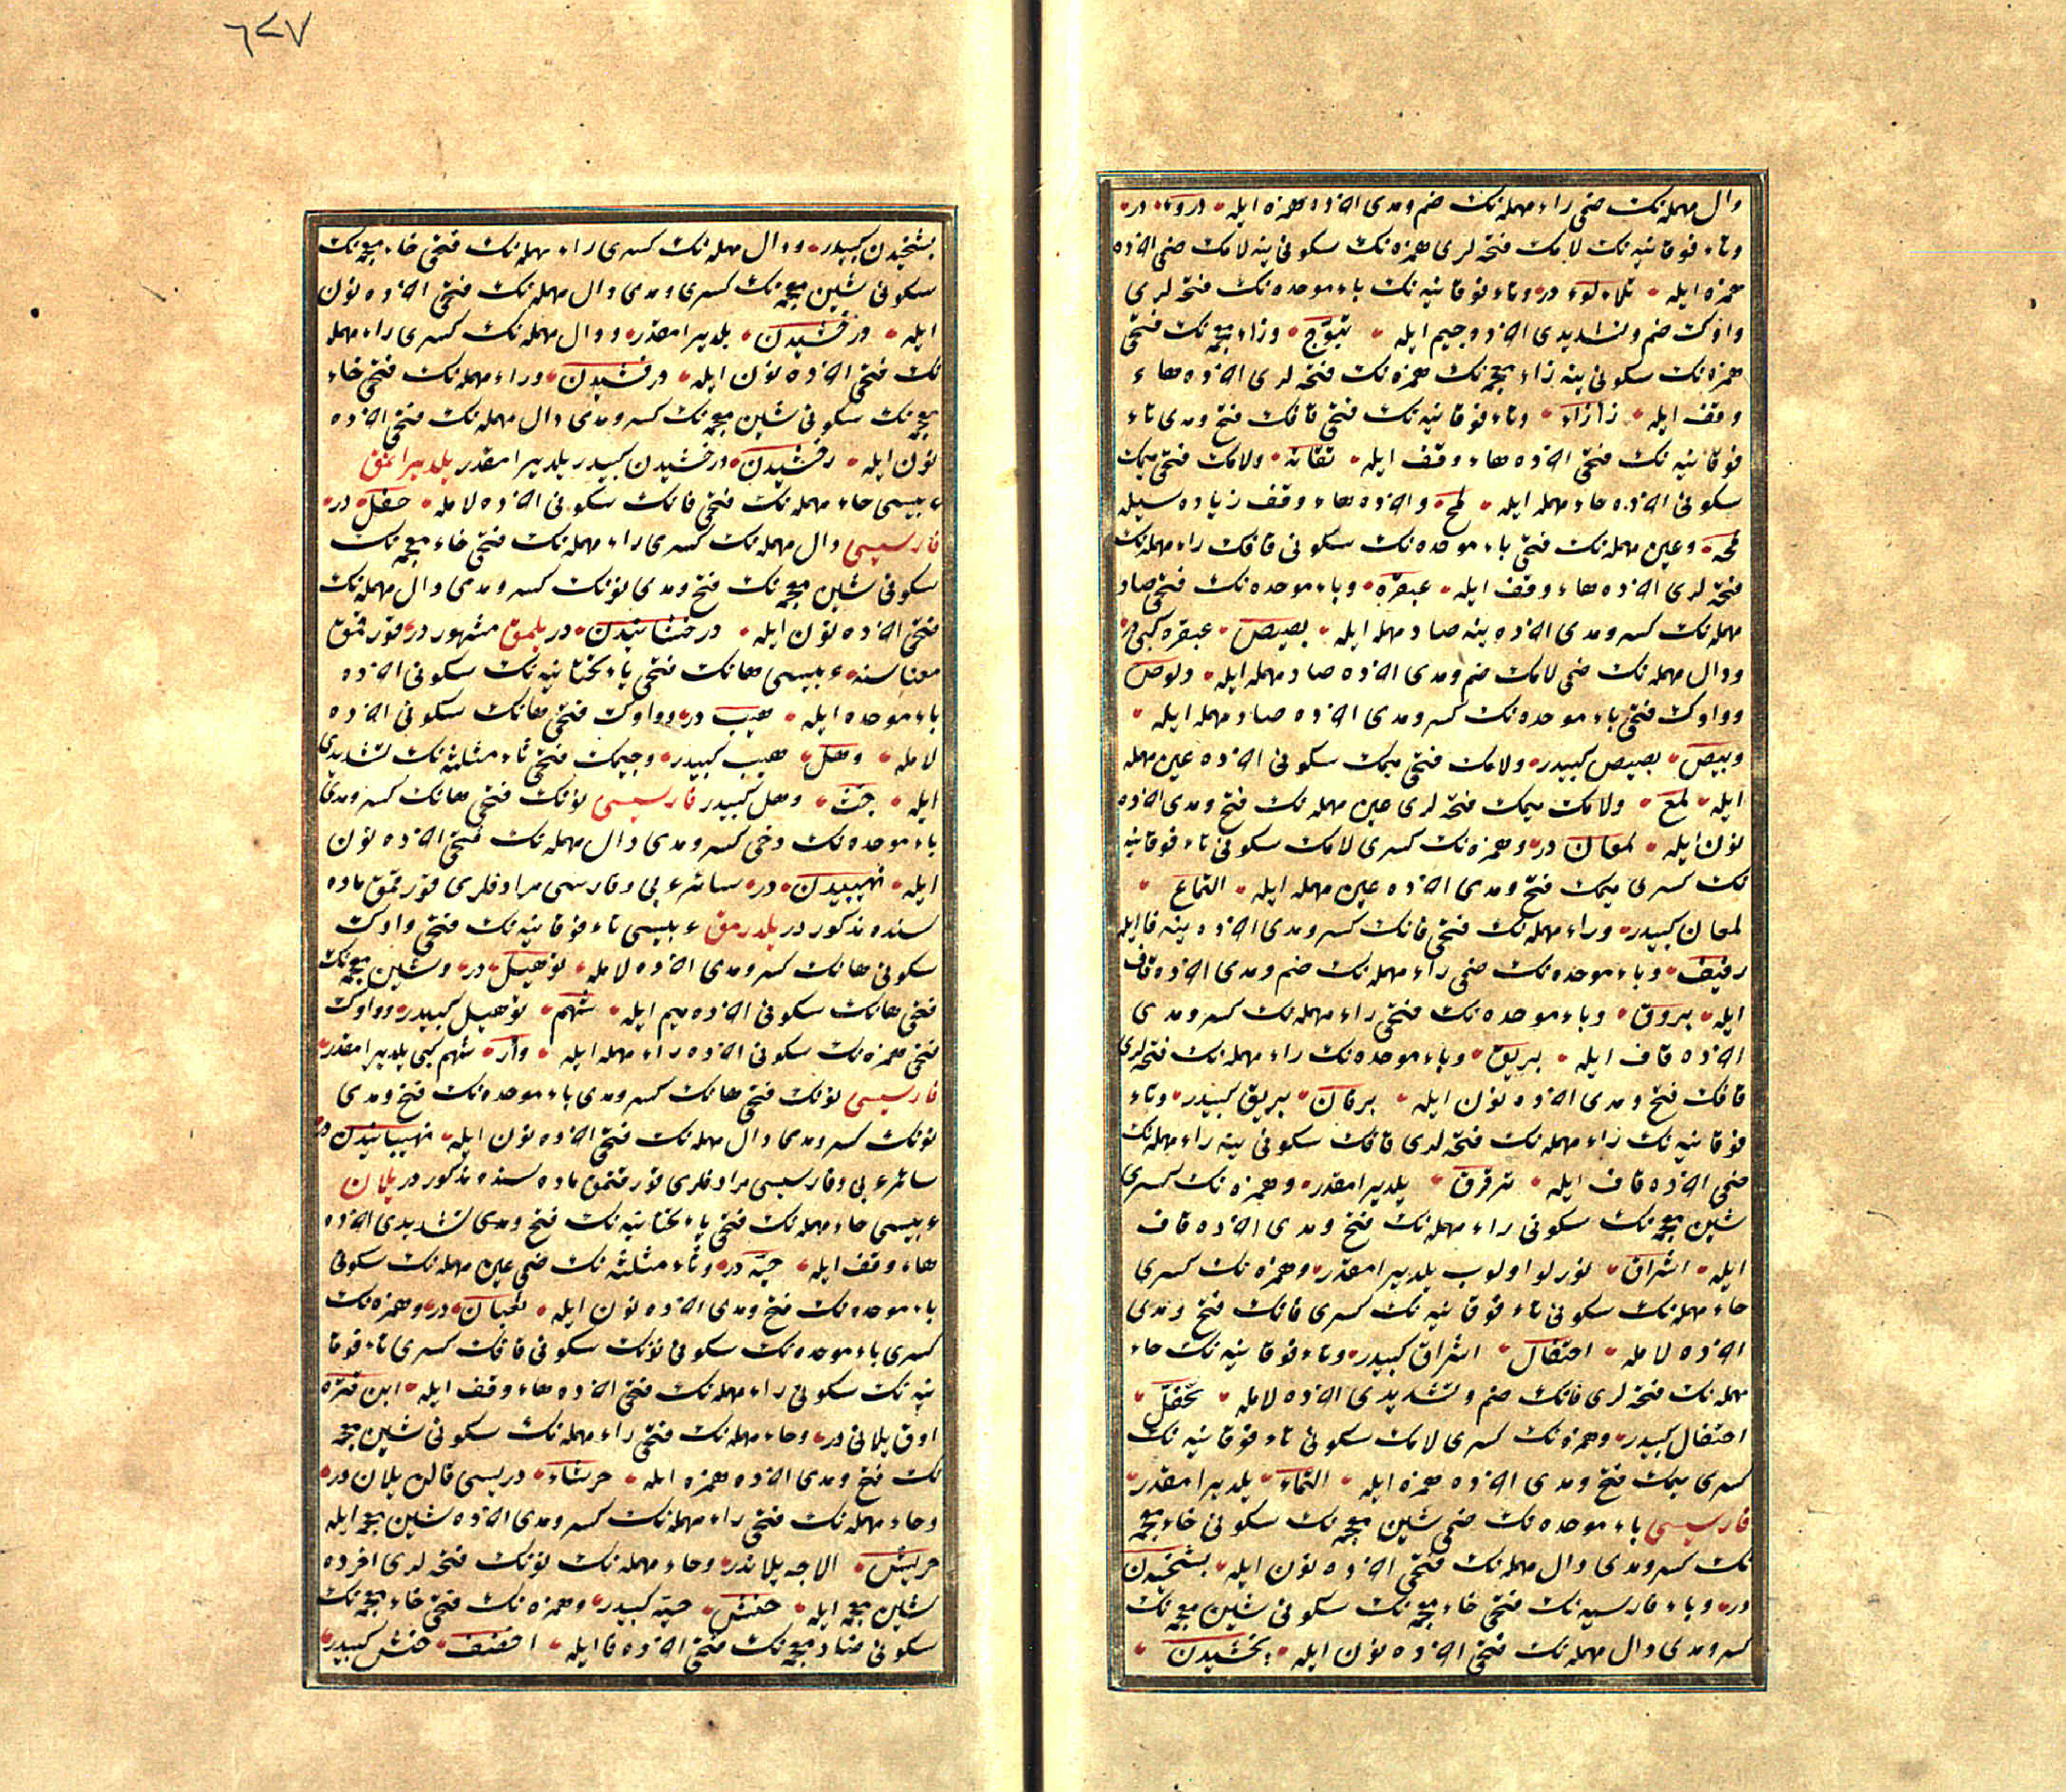 دال مهمله‌نك ضمى راء مهمله‌نك ضم و مدى اخرده همزه ايله دروء در
وتاء فوقانيه‌نك لامك فتحه‌لرى همزه‌نك سكونى ينه لامك ضمى اخرده
همزه ايله تلاءلوء در وتاء فوقانيه‌نك باء موحده‌نك فتحه‌لرى
واوك ضم و تشديدى اخرده جيم ايله تبوّج وزاء معجمه‌نك فتحى
همزه‌نك سكونى ينه زاء معجمه‌نك همزه‌نك فتحه‌لرى اخرده هاء
وقف ايله زأزاه وتاء فوقانيه‌نك فتحى قافك فتح و مدى تاء
فوقانيه‌نك فتحى اخرده هاء وقف ايله تقاته ولامك فتحى ميمك
سكونى اخرده حاء مهمله ايله لمح واخرده هاء وقف زياده سيله
لمحه وعين مهمله‌نك فتحى باء موحده‌نك سكونى قافك راء مهمله‌نك
فتحه‌لرى اخرده هاء وقف ايله عبقره وباء موحده‌نك فتحى صاد
مهمله‌نك كسر و مدى اخرده ينه صاد مهمله ايله بصيص عبقره كبيدر
ودال مهمله‌نك ضمى لامك ضم و مدى اخرده صاد مهمله ايله دلوص
وواوك فتحى باء موحده‌نك كسر و مدى اخرده صاد مهمله ايله
وبيص بصيص كبيدر ولامك فتحى ميمك سكونى اخرده عين مهمله
ايله لمع ولامك ميمك فتحه‌لرى عين مهمله‌نك فتح و مدى اخرده
نون ايله لمعان در وهمزه‌نك كسرى لامك سكونى تاء فوقانيه
نك كسرى ميمك فتح و مدى اخرده عين مهمله ايله التماع
لمعان كبيدر وراء مهمله‌نك فتحى فانك كسر و مدى اخرده ينه فا ايله
رفيف وباء موحده‌نك ضمى راء مهمله‌نك ضم و مدى اخرده قاف
ايله بروق وباء موحده‌نك فتحى راء مهمله‌نك كسر و مدى
اخرده قاف ايله بريق وباء موحده‌نك راء مهمله‌نك فتحه‌لرى
قافك فتح و مدى اخرده نون ايله برقان بريق كبيدر وتاء
فوقانيه‌نك راء مهمله‌نك فتحه‌لرى قافك سكونى ينه راء مهمله‌نك
ضمى اخرده قاف ايله ترقرق يلديرامقدر وهمزه‌نك كسرى
شين معجمه‌نك سكونى راء مهمله‌نك فتح و مدى اخرده قاف
ايله اشراق نورلو اولوب يلديرامقدر وهمزه‌نك كسرى
حاء مهمله‌نك سكونى تاء فوقانيه‌نك كسرى فانك فتح و مدى
اخرده لامله احتفال اشراق كبيدر وتاء فوقانيه‌نك حاء
مهمله‌نك فتحه‌لرى فانك ضم و تشديدى اخرده لامله تحفّل
احتفال كبيدر وهمزه‌نك كسرى لامك سكونى تاء فوقانيه‌نك
كسرى ميمك فتح و مدى اخرده همزه ايله التماء يلديرامقدر
فارسيسى باء موحده‌نك ضمى شين معجمه‌نك سكونى خاء معجمه
نك كسر و مدى دال مهمله‌نك فتحى اخرده نون ايله بشخيدن
در وباء فارسيه‌نك فتحى خاء معجمه‌نك سكونى شين معجمه‌نك
كسر و مدى دال مهمله‌نك فتحى اخرده نون ايله پخشيدن
٦٤٧
بشخيدن كبيدر ودال مهمله‌نك كسرى راء مهمله‌نك فتحى خاء معجمه‌نك
سكونى شين معجمه‌نك كسرى و مدى دال مهمله‌نك فتحى اخرده نون
ايله درخشيدن يلديرامقدر ودال مهمله‌نك كسرى راء مهمله
نك فتحى اخرده نون ايله درفشيدن وراء مهمله‌نك فتحى خاء
معجمه‌نك سكونى شين معجمه‌نك كسر و مدى دال مهمله‌نك فتحى اخرده
نون ايله رخشيدن درخشيدن كبيدر يلديرامقدر يلديراتمق
عربيسى حاء مهمله‌نك فتحى فانك سكونى اخرده لامله حفل در
فارسيسى دال مهمله‌نك كسرى راء مهمله‌نك فتحى خاء معجمه‌نك
سكونى شين معجمه‌نك فتح و مدى نونك كسر و مدى دال مهمله‌نك
فتحى اخرده نون ايله درخشانيدن در يلمق مشهور در قورقمق
معناسنه عربيسى هانك فتحى ياء تحتانيه‌نك سكونى اخرده
باء موحده ايله هيب در وواوك فتحى هانك سكونى اخرده
لامله وهل هيب كبيدر وجيمك فتحى ثاء مثلثه‌نك تشديدى
ايله جثّ وهل كبيدر فارسيسى نونك فتحى هانك كسر و مدى
باء موحده‌نك دخى كسر و مدى دال مهمله‌نك فتحى اخرده نون
ايله نهيبيدن در سائر عربى وفارسى مرادفلرى قورقمق ماده
سنده مذكور در يلدرمق عربيسى تاء فوقانيه‌نك فتحى واوك
سكونى هانك كسر و مدى اخرده لامله توهيل در وشين معجمه‌نك
فتحى هانك سكونى اخرده ميم ايله شهم توهيل كبيدر وواوك
فتحى همزه‌نك سكونى اخرده راء مهمله ايله وأر شهم كبى يلديرامقدر
فارسيسى نونك فتحى هانك كسر و مدى باء موحده‌نك فتح و مدى
نونك كسر و مدى دال مهمله‌نك فتحى اخرده نون ايله نهيبانيدن در
سائر عربى وفارسيسى مرادفلرى قورقتمق ماده سنده مذكور در يلان
عربيسى حاء مهمله‌نك فتحى ياء تحتانيه‌نك فتح و مدى تشديدى اخرده
هاء وقف ايله حيّه در وثاء مثلثه‌نك ضمى عين مهمله‌نك سكونى
باء موحده‌نك فتح و مدى اخرده نون ايله ثعبان در وهمزه‌نك
كسرى باء موحده‌نك سكونى نونك سكونى قافك كسرى تاء فوقا
نيه‌نك سكونى راء مهمله‌نك فتحى اخرده هاء وقف ايله ابن قتره
اوق يلانى در وحاء مهمله‌نك فتحى راء مهمله‌نك سكونى شين معجمه
نك فتح و مدى اخرده همزه ايله حرشاء دريسى قالن يلان در
وحاء مهمله‌نك فتحى راء مهمله‌نك كسر و مدى اخرده شين معجمه ايله
حريش الاجه يلاندر وحاء مهمله‌نك نونك فتحه‌لرى اخرده
شين معجمه ايله حنش حيّه كبيدر وهمزه‌نك فتحى خاء معجمه‌نك
سكونى ضاد معجمه‌نك فتحى اخرده فا ايله اخضف حنش كبيدر